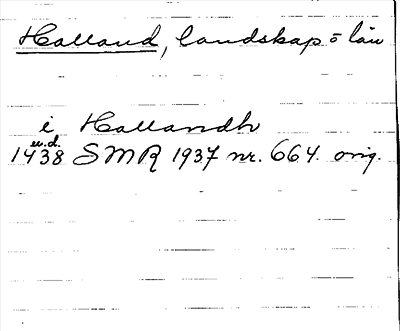 Halland, landskap o län
i Hallandh
u.d.
1438 SMR 1937 nr. 664. orig.